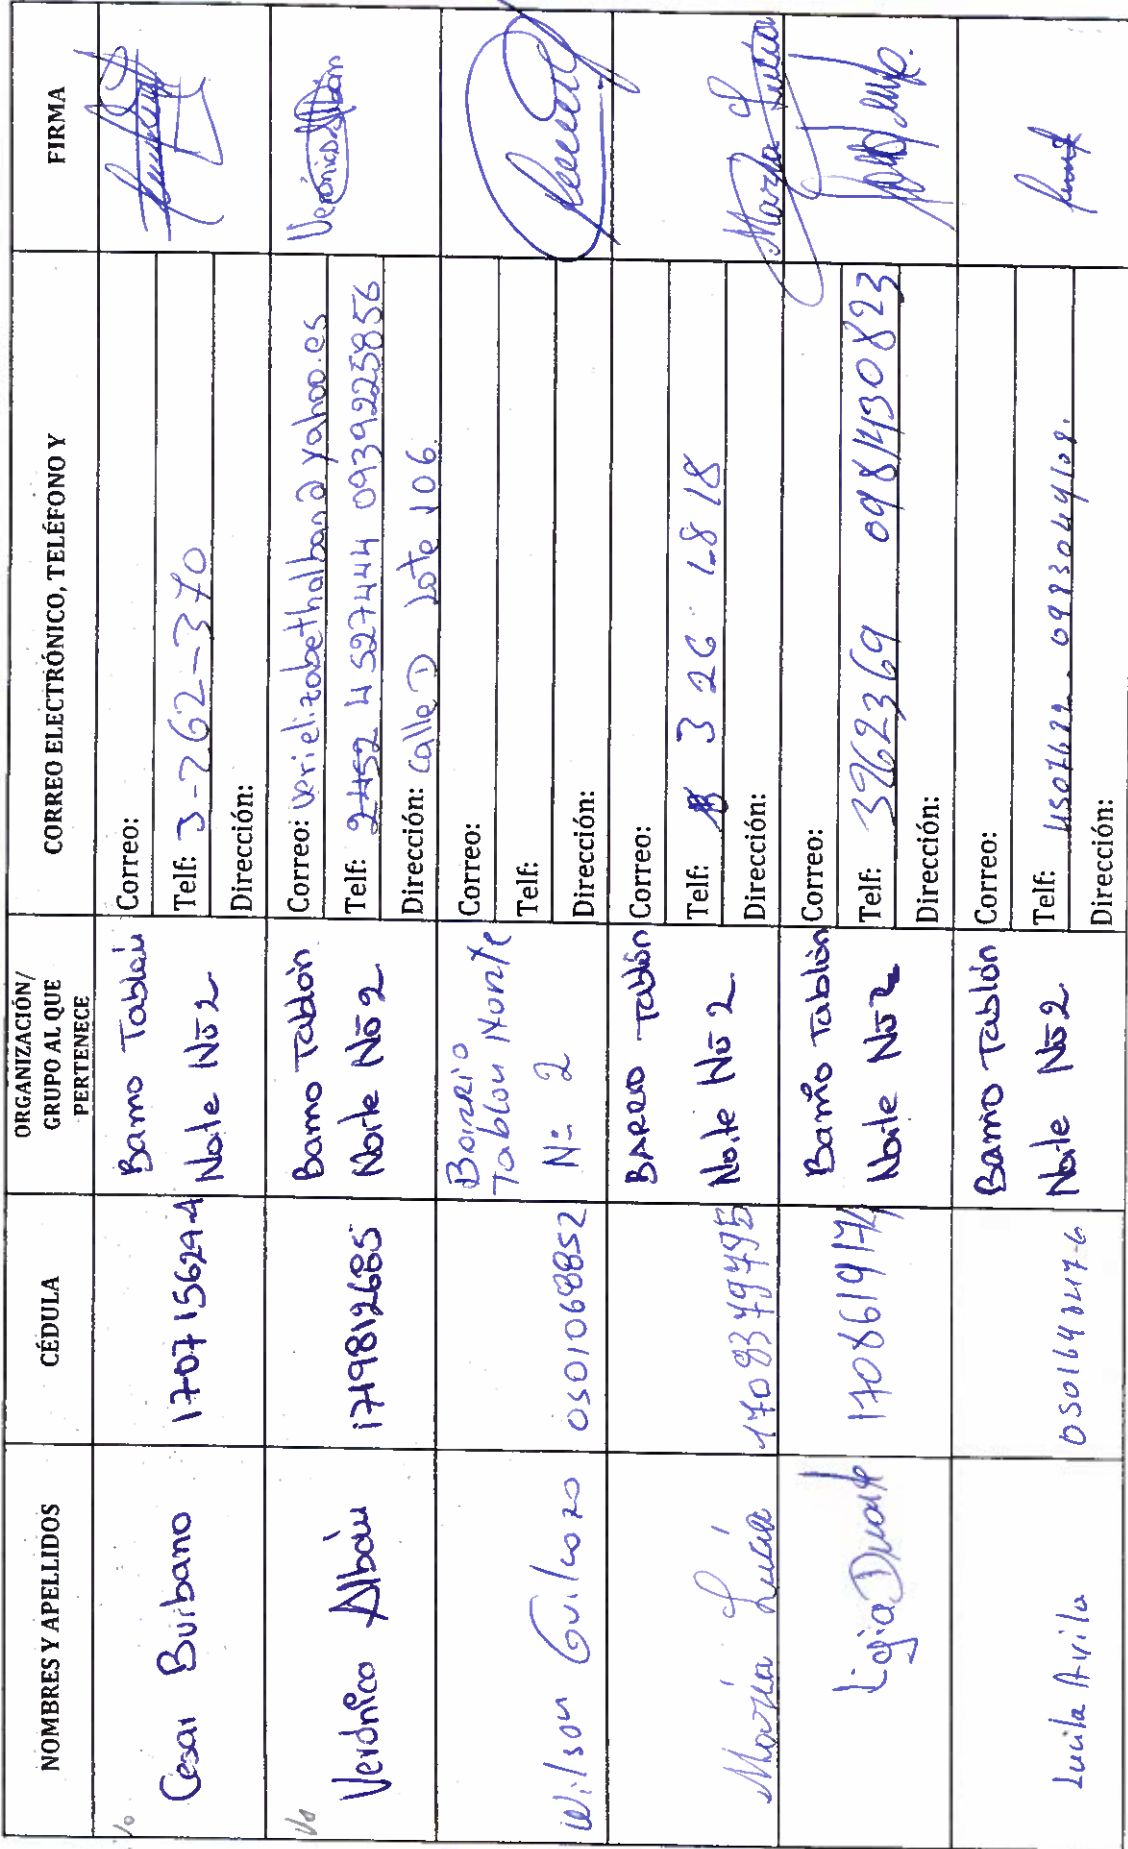 NOMBRES Y APELLIDOS
CÉDULA
ORGANIZACIÓN/
GRUPO AL QUE
PERTENECE
CORREO ELECTRÓNICO, TELÉFONO Y
FIRMA
Cesar Burbano
170715629-4
Barrio Tablón
Norte Nō 2
Correo:
Telf: 3-262-370
Dirección:
Verónica Albán
1719812685
Barrio Tablón
Norte Nō 2
Correo: verielizabethalban@yahoo.es
Telf: 2452 4527444 0939225856
Dirección: Calle D Lote 106
Verónica Albán
Wilson Guilcazo
0501068852
Barrio
Tablon Norte
N= 2
Correo:
Telf:
Dirección:
María Lucía
BARRIO Tablón
Norte Nō 2
Correo:
Telf: 3 26 18 18
Dirección:
María Lucía
Ligia Duarte
1708619174
Barrio Tablón
Norte Nō 2
Correo:
Telf: 3262369 0981430823
Dirección:
Lucila Avila
Barrio Tablón
Norte Nō 2
Correo:
Telf:
Dirección: